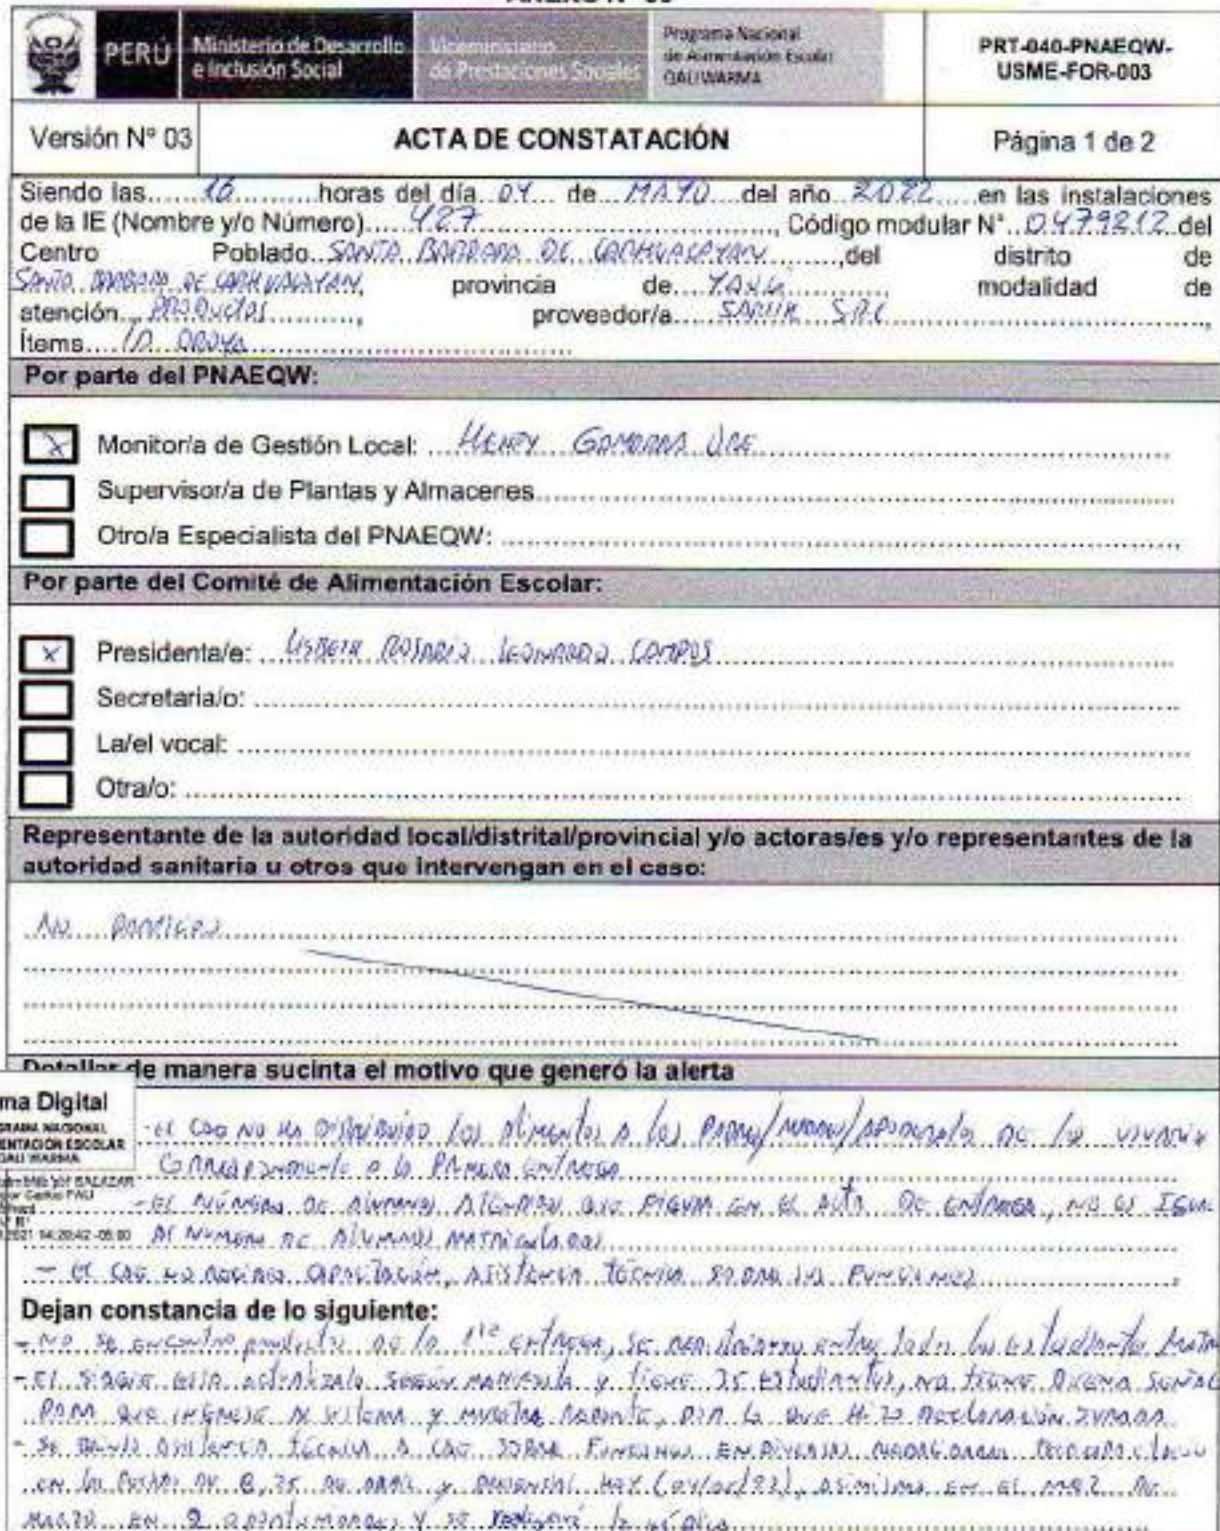 PERÚ
Ministerio de Desarrollo
e Inclusión Social
Viceministerio
de Prestaciones Sociales
Programa Nacional
de Alimentación Escolar
QALIWARMA
PRT-040-PNAEQW-
USME-FOR-003
Versión Nº 03
ACTA DE CONSTATACIÓN
Página 1 de 2
Siendo las 16 horas del día 04 de MAYO del año 2022 en las instalaciones
de la IE (Nombre y/o Número) 427, Código modular N° 0479212 del
Centro Poblado SANTA BARBARA DE CARHUACAYAN, del distrito de
SANTA BARBARA DE CARHUACAYAN, provincia de YAULI, modalidad de
atención PRODUCTOS, proveedor/a SRL,
Ítems LA OROYA
Por parte del PNAEQW:
X Monitor/a de Gestión Local: HENRY GAMARRA
Supervisor/a de Plantas y Almacenes
Otro/a Especialista del PNAEQW:
Por parte del Comité de Alimentación Escolar:
X Presidenta/e: LISBETH ROSARIO LEONARDO CAMPOS
Secretaria/o:
La/el vocal:
Otra/o:
Representante de la autoridad local/distrital/provincial y/o actoras/es y/o representantes de la
autoridad sanitaria u otros que intervengan en el caso:
NO
Detallar de manera sucinta el motivo que generó la alerta
ma Digital
- EL CAE NO HA DISTRIBUIDO LOS ALIMENTOS A LOS PADRES/MADRES/APODERADOS DE LOS USUARIOS
CORRESPONDIENTE A LA PRIMERA ENTREGA
- EL NÚMERO DE ALUMNOS ATENDIDOS QUE FIGURA EN EL ACTA DE ENTREGA, NO ES IGUAL
AL NUMERO DE ALUMNOS MATRICULADOS
- EL CAE NO RECIBIO CAPACITACIÓN, ASISTENCIA TÉCNICA SOBRE SUS FUNCIONES
Dejan constancia de lo siguiente:
- NO SE ENCONTRO productos DE LA 1ra ENTREGA, SE entre todos los estudiantes
- El SIAGIE ESTA SEGUN y TIENE 35 ESTUDIANTES, NO TIENE BUENA SEÑAL
PARA QUE INGRESE AL SISTEMA y REPORTE, POR LO QUE HIZO DECLARACIÓN JURADA
- SE ASISTENCIA TÉCNICA A CAE SOBRE FUNCIONES EN DIVERSAS
EN LAS FECHAS DE 8, 25 DE ABRIL y HOY (04/05/22), ASIMISMO EN EL MES DE
MARZO EN 2 OPORTUNIDADES, Y SE